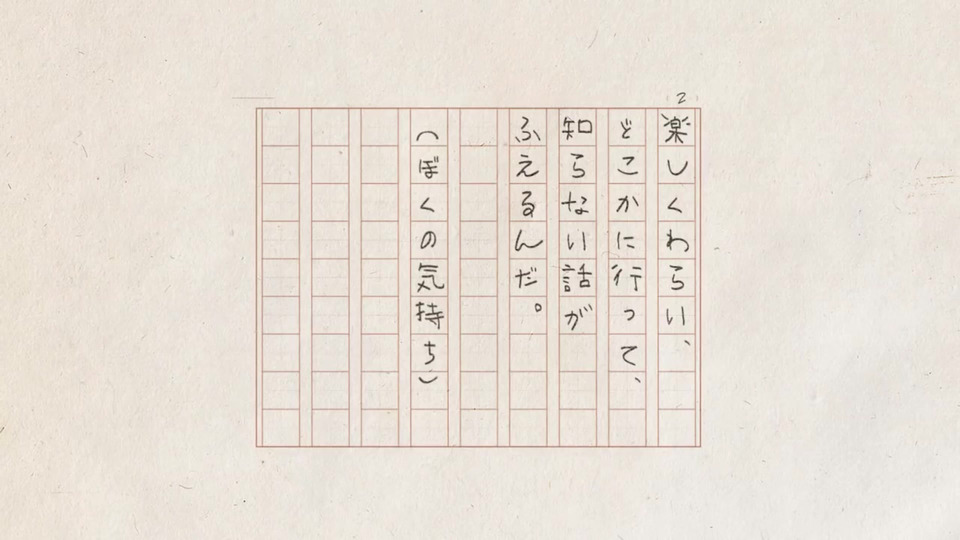 2
楽しくわらい、
どこかに行って、
知らない話が
ふえるんだ。
（ぼくの気持ち）